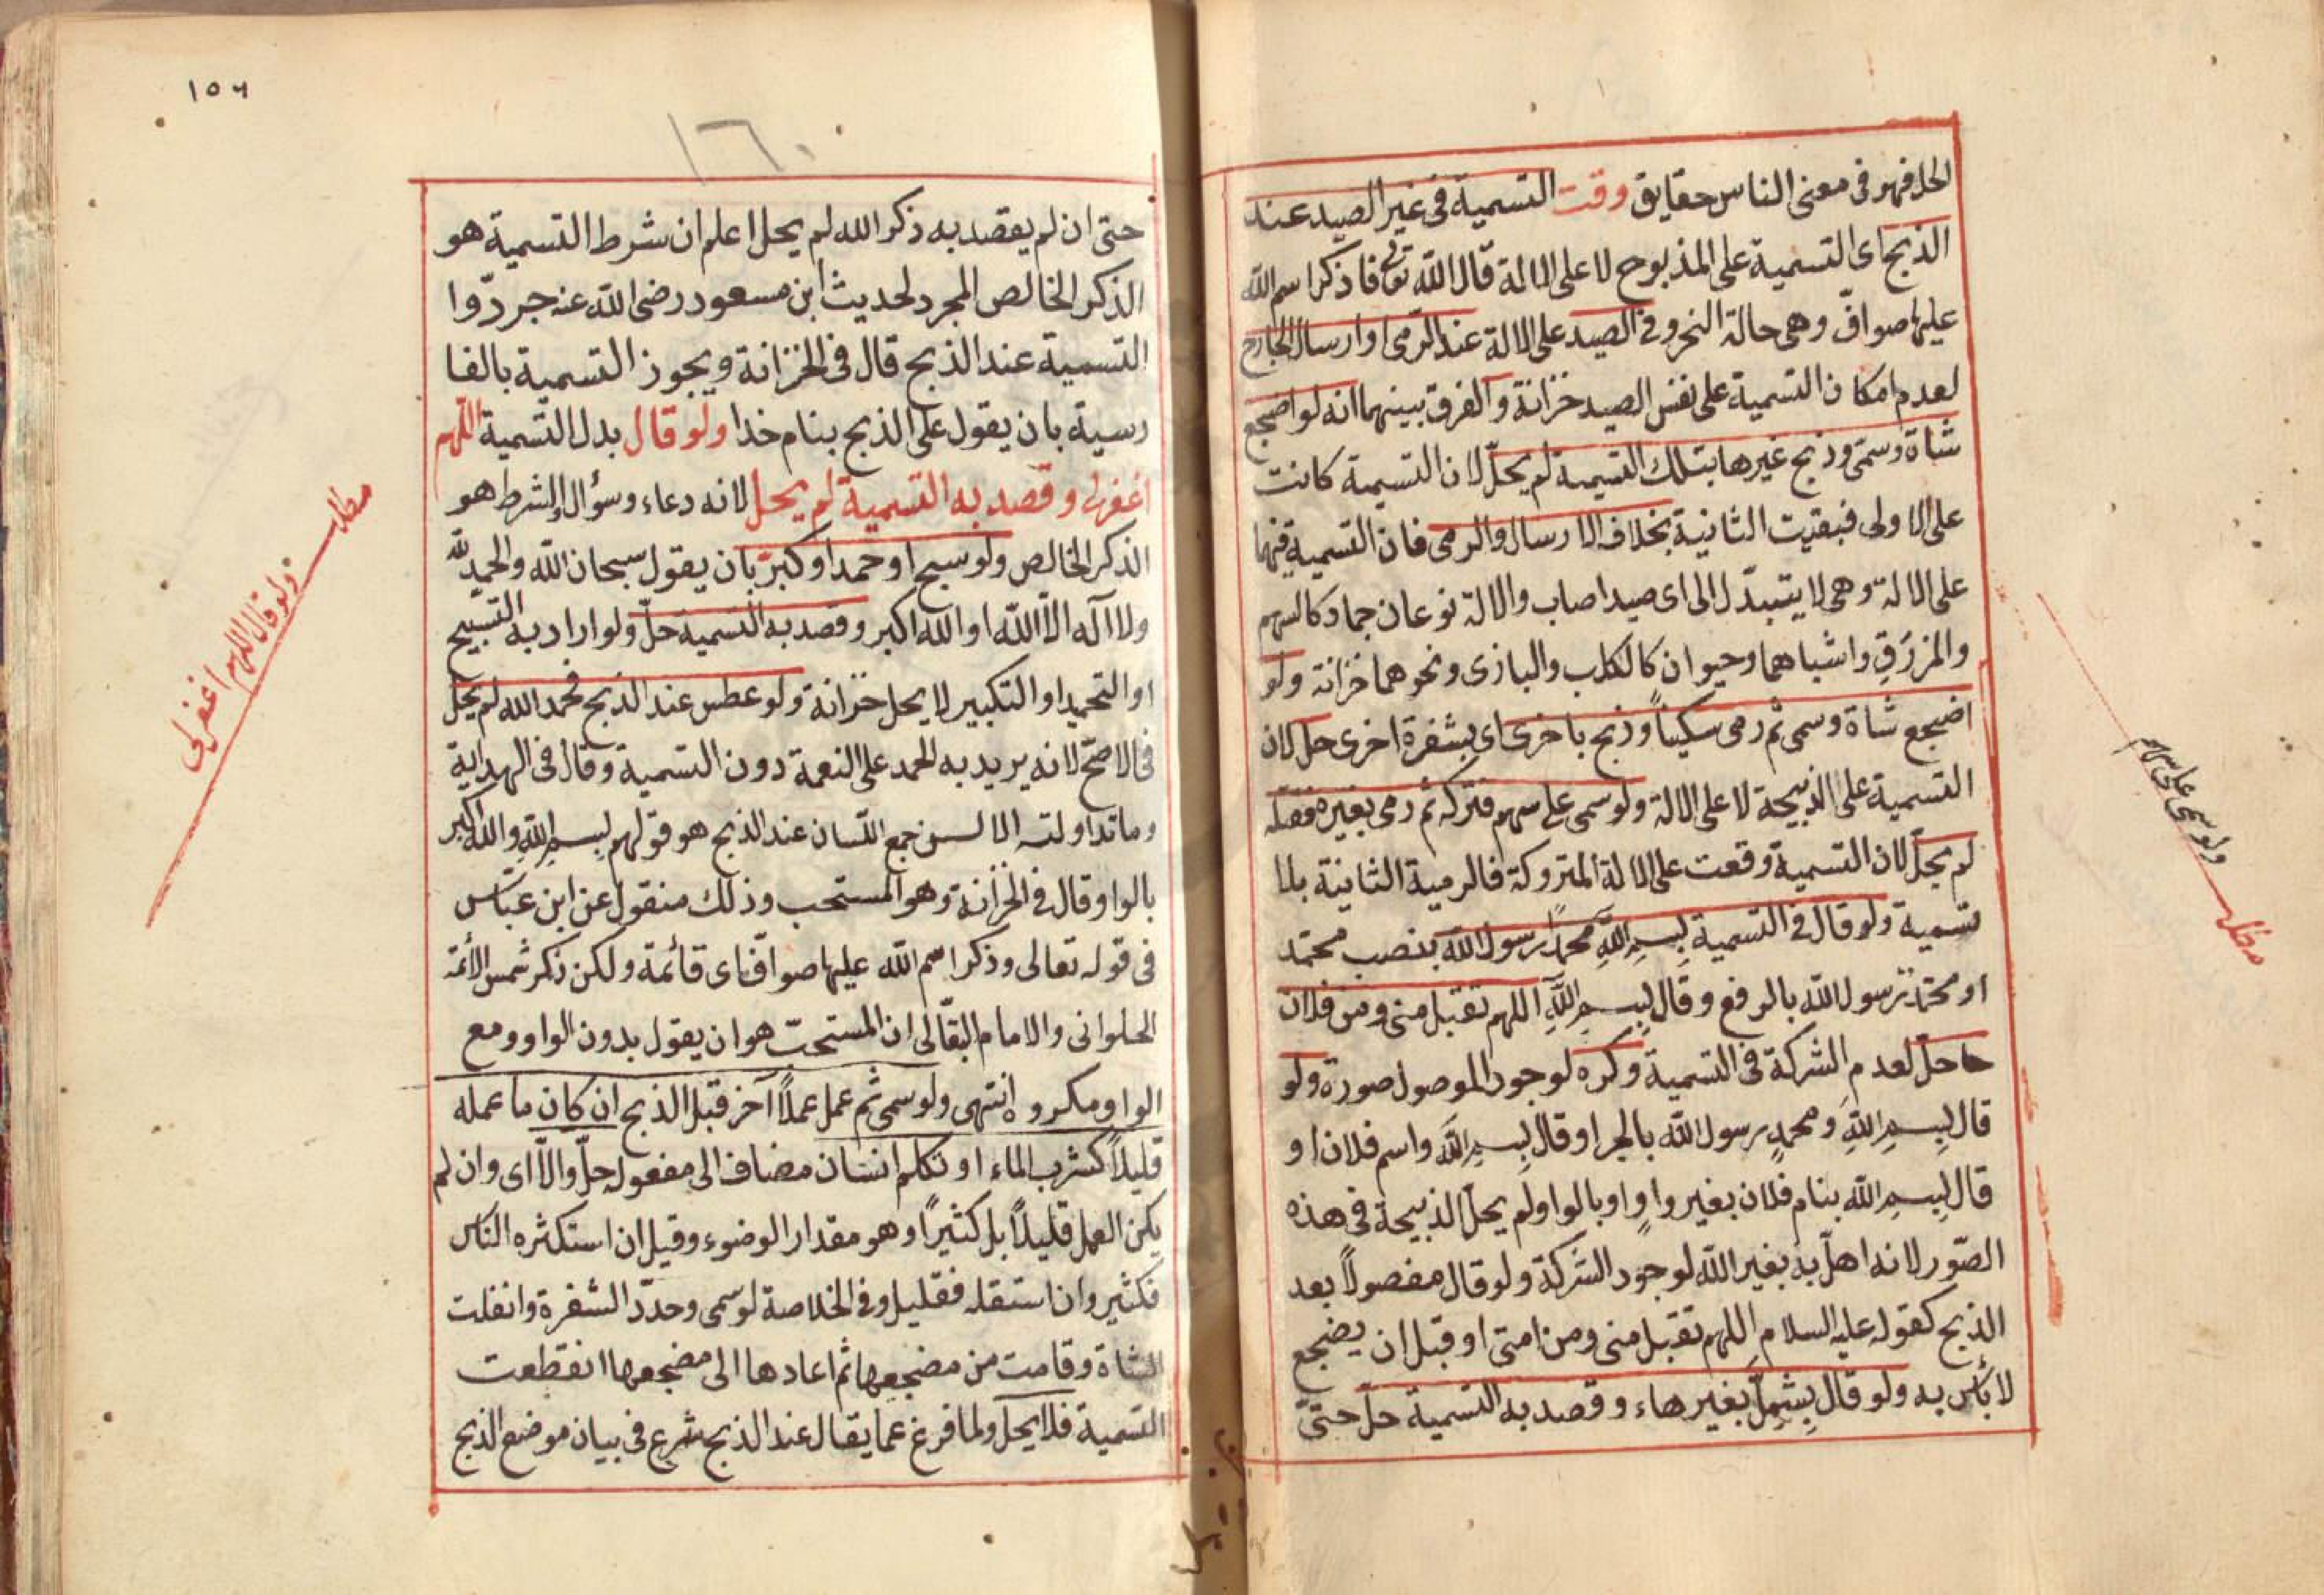 الحل فهو فى معنى الناس حقايق وقت التسمية فى غير الصيد عند
الذبح اى التسمية على المذبوح لا على الالة قال الله تعالى فاذكرا سم الله
عليها صوافّ وهى حالة النحر وفى الصيد على الالة عند الرّمى او ارسال الجارح
لعدم امكان التسمية على نفس الصيد خزانة والفرق بينهما انه لو اضجع
شاة وسمّى وذبح غيرها بتلك التسمية لم يحلّ لان التسمية كانت
على الاولى فبقيت الثانية بخلاف الارسال والرمى فان التسمية فيهما
على الالة وهى لا يتبدّل الى اى صيد اصاب والالة نوعان جماد كالسهم
والمزرَقِ واشباهما وحيوان كالكلب والبازى ونحوهما خزانة ولو
اضجع شاة وسمى ثم رمى سكيناً وذبح باخرى اى بشفرة اخرى حل لان
التسمية على الذبيحة لا على الالة ولو سمى على سهم فتركه ثم رمى بغيره فقتله
لم يحلّ لان التسمية وقعت على الالة المتروكة فالرمية الثانية بلا
تسمية ولو قال فى التسمية بِسمِ اللّهِ محمدً رسول الله بنصب محمّد
او محمّدٌ رسول الله بالرفع وقال بِسمِ اللّهِ اللهم تقبل منى ومن فلان
حلّ لعدم الشركة فى التسمية وكره لوجود الموصول صورة ولو
قال بِسمِ اللهِ ومحمدٍ رسول الله بالجر او قال بِسمِ اللهِ واسم فلان او
قال بِسمِ الله بنام فلان بغير واوٍ او بالواو لم يحلّ الذبيحة فى هذه
الصّور لانه اهلّ به بغير الله لوجود الشركة ولو قال مفصولاً بعد
الذبح كقوله عليه السلام اللهم تقبل منى ومن امتى او قبل ان يضجع
لا بأس به ولو قال بِسْمِلّ بغير هاء وقصد به التسمية حلّ حتىّ
ولو سمى على سهم
مطلب
١٥٦
١٦٠
حتى ان لم يقصد به ذكر الله لم يحل اعلم ان شرط التسمية هو
الذكر الخالص المجرد لحديث ابن مسعود رضى الله عنه جردّوا
التسمية عند الذبح قال فى الخزانة ويجوز التسمية بالفا
رسية بان يقول على الذبح بنام خدا ولو قال بدل التسمية اللّهم
اغفرلى وقصد به التسمية لم يحل لانه دعاء وسؤال والشرط هو
الذكر الخالص ولو سبح او حمد او كبّر بان يقول سبحان الله والحمد لله
ولا آله الّا الله او الله اكبر وقصد به التسمية حلّ ولو اراد به التسبيح
او التحميد او التكبير لا يحل خزانة ولو عطس عند الذبح فحمد الله لم يحلّ
فى الاصحّ لانه يريد به الحمد على النعمة دون التسمية وقال فى الهداية
وما تداولته الالسن جمع اللسان عند الذبح هو قولهم بِسمِ اللّهِ والله اكبر
بالواو قال فى الخزانة وهو المستحب وذلك منقول عن ابن عبّاس
فى قوله تعالى وذكرا سم الله عليها صوافّ اى قائمة ولكن ذكر شمس الأئمة
الحلوانى والامام البقّالى ان المستحبّ هو ان يقول بدون الواو ومع
الواو مكروه انتهى ولو سمى ثم عمل عملاً آخر قبل الذبح ان كان ما عمله
قليلاً كشرب الماء او تكلم انسان مضاف الى مفعوله حلّ والّا اى وان لم
يكن العمل قليلاً بل كثيراً وهو مقدار الوضوء وقيل ان استكثره الناس
فكثير وان استقله فقليل وفى الخلاصة لو سمى وحدّد الشفرة وانفلت
الشاة وقامت من مضجعها ثم اعادها الى مضجعها انقطعت
التسمية فلا يحل ولما فرغ عما يقال عند الذبح شرع فى بيان موضع الذبح
مطلب
ولو قال اللهم اغفر لى